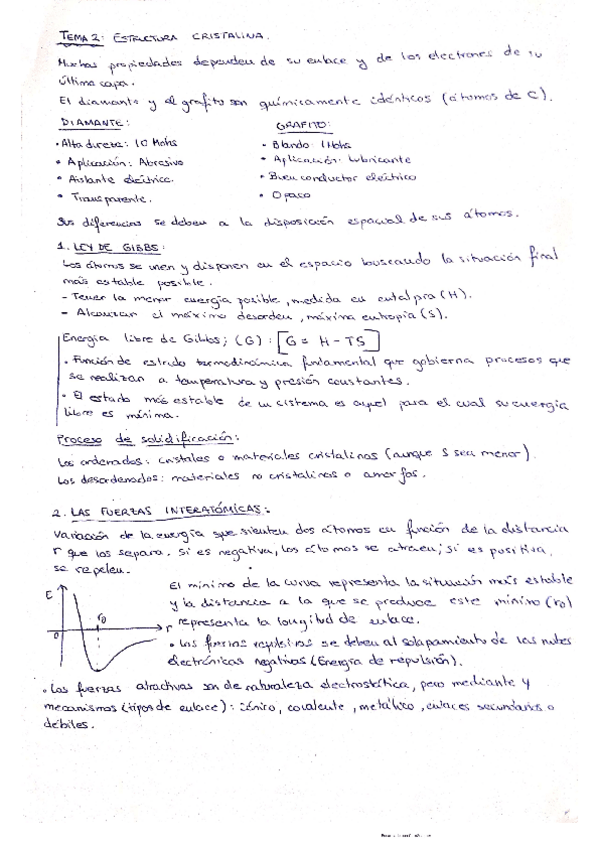 TEMA 2: ESTRUCTURA CRISTALINA.
Muchas propiedades dependen de su enlace y de los electrones de su
última capa.
El diamante y el grafito son químicamente idénticos (átomos de C).
DIAMANTE:
• Alta dureza: 10 Mohs
• Aplicación: Abrasivo
• Aislante eléctrico.
• Transparente.
GRAFITO:
• Blando: 1 Mohs
• Aplicación: Lubricante
• Buen conductor eléctrico
• Opaco
Sus diferencias se deben a la disposición espacial de sus átomos.
1. LEY DE GIBBS:
Los átomos se unen y disponen en el espacio buscando la situación final
más estable posible.
- Tener la menor energía posible, medida en entalpía (H).
- Alcanzar el máximo desorden, máxima entropía (S).
Energía libre de Gibbs; (G): [G = H - TS]
• Función de estado termodinámica fundamental que gobierna procesos que
se realizan a temperatura y presión constantes.
• El estado más estable de un sistema es aquel para el cual su energía
libre es mínima.
Proceso de solidificación:
Los ordenados: cristales o materiales cristalinos (aunque S sea menor).
Los desordenados: materiales no cristalinos o amorfos.
2. LAS FUERZAS INTERATÓMICAS:
Variación de la energía que sienten dos átomos en función de la distancia
r que los separa. Si es negativa, los átomos se atraen; si es positiva,
se repelen.
E
0
r0
r
El mínimo de la curva representa la situación más estable
y la distancia a la que se produce este mínimo (r0)
representa la longitud de enlace.
• Las fuerzas repulsivas se deben al solapamiento de las nubes
electrónicas negativas (Energía de repulsión).
• Las fuerzas atractivas son de naturaleza electrostática, pero mediante 4
mecanismos (tipos de enlace): iónico, covalente, metálico, enlaces secundarios o
débiles.